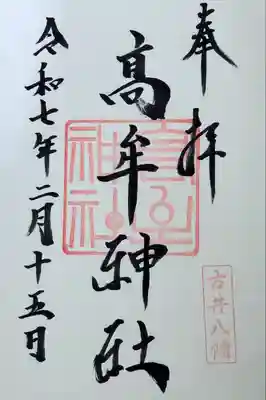 奉拝
高牟神社
令和七年二月十五日
古井八幡